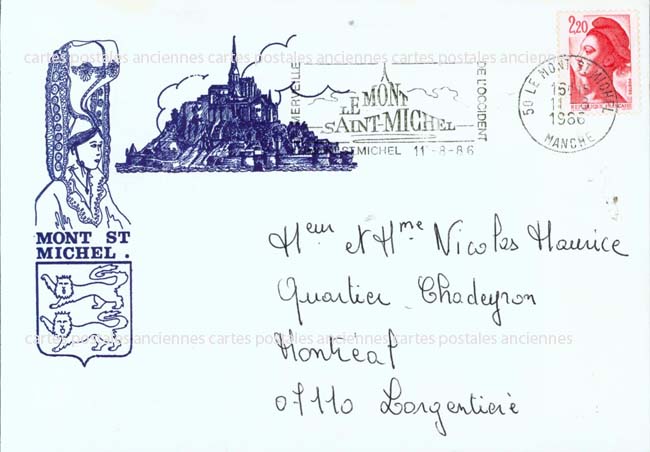 cartes postales anciennes cartes postales anciennes cartes postales anciennes
2,20
REPUBLIQUE FRANÇAISE
MERVEILLE
DE L'OCCIDENT
LE MONT
SAINT-MICHEL
ST MICHEL 11-8-86
50 LE MONT ST MICHEL
15H
11-8
1986
MANCHE
MONT ST
MICHEL.
Meur et Mme Nicolas Maurice
Quartier Chadeyron
Montréal
07110 Largentière
cartes postales anciennes cartes postales anciennes cartes postales anciennes